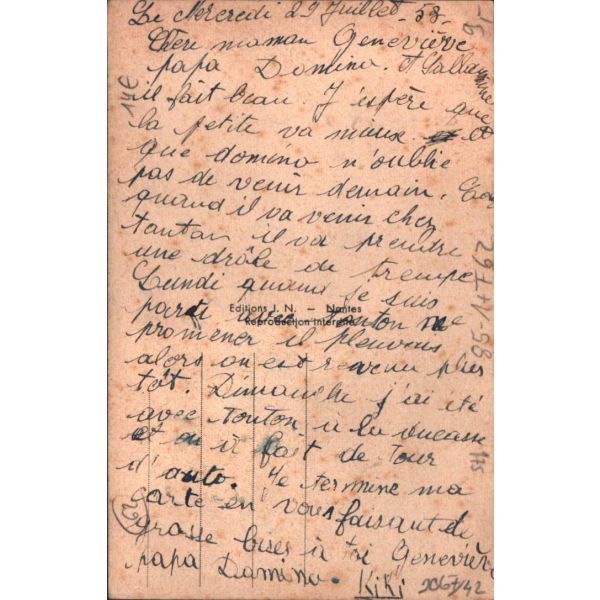 Le Mercredi 29 Juillet - 58 -
Chère maman Geneviève
papa Domino. A
il fait beau. J'espère que
la petite va mieux. et
que domino n'oublie
pas de venir demain.
quand il va venir chez
tonton il va prendre
une drôle de trempe
Lundi quand je suis
parti avec tonton me
promener il pleuvais
alors on est revenu plus
tôt. Dimanche j'ai été
avec tonton à la ducasse
et on à fait de tour
d'auto. Je termine ma
carte en vous faisant de
grosse bises à toi Geneviève
papa Domino. KiKi
Editions J. N. — Nantes
Reproduction interdite
14€
29-7-58